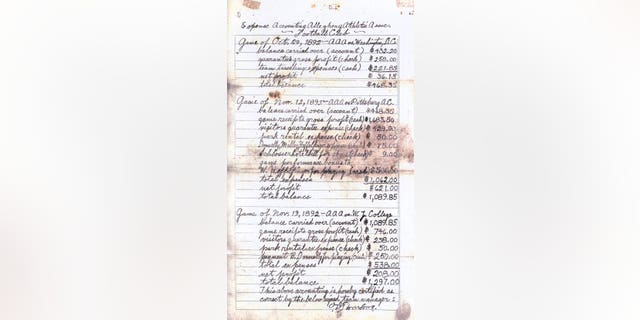 Expense Accounting Allegheny Athletic Assoc.
Football Club
Game of Oct. 29, 1892 - AAA vs Washington, D.C.
balance carried over (account) $432.20
guarantee gross profit (check) $250.00
team traveling expenses (cash) $221.85
net profit $36.15
total balance $468.35
Game of Nov. 12, - AAA vs Pittsburg A.C.
balance carried over (account) $468.35
game receipts gross profit (cash) $1,683.50
visitors guarantee expense (check) $
park rental expense (check) $50.00
expense
for $9.00
game performance bonus to
W. for playing (cash) $500.00
total expenses $1,062.00
net profit $621.00
total balance $1,089.85
Game of Nov. 19, 1892 - AAA vs W. J. College
balance carried over (account) $1,089.85
game receipts gross profit (cash) $746.00
visitors guarantee expense (check) $238.00
park rental expense (check) $50.00
payment to Donnelly for playing (cash) $250.00
total expenses $538.00
net profit $208.00
total balance $1,297.00
This above accounting is hereby certified as
correct by the below signed team manager